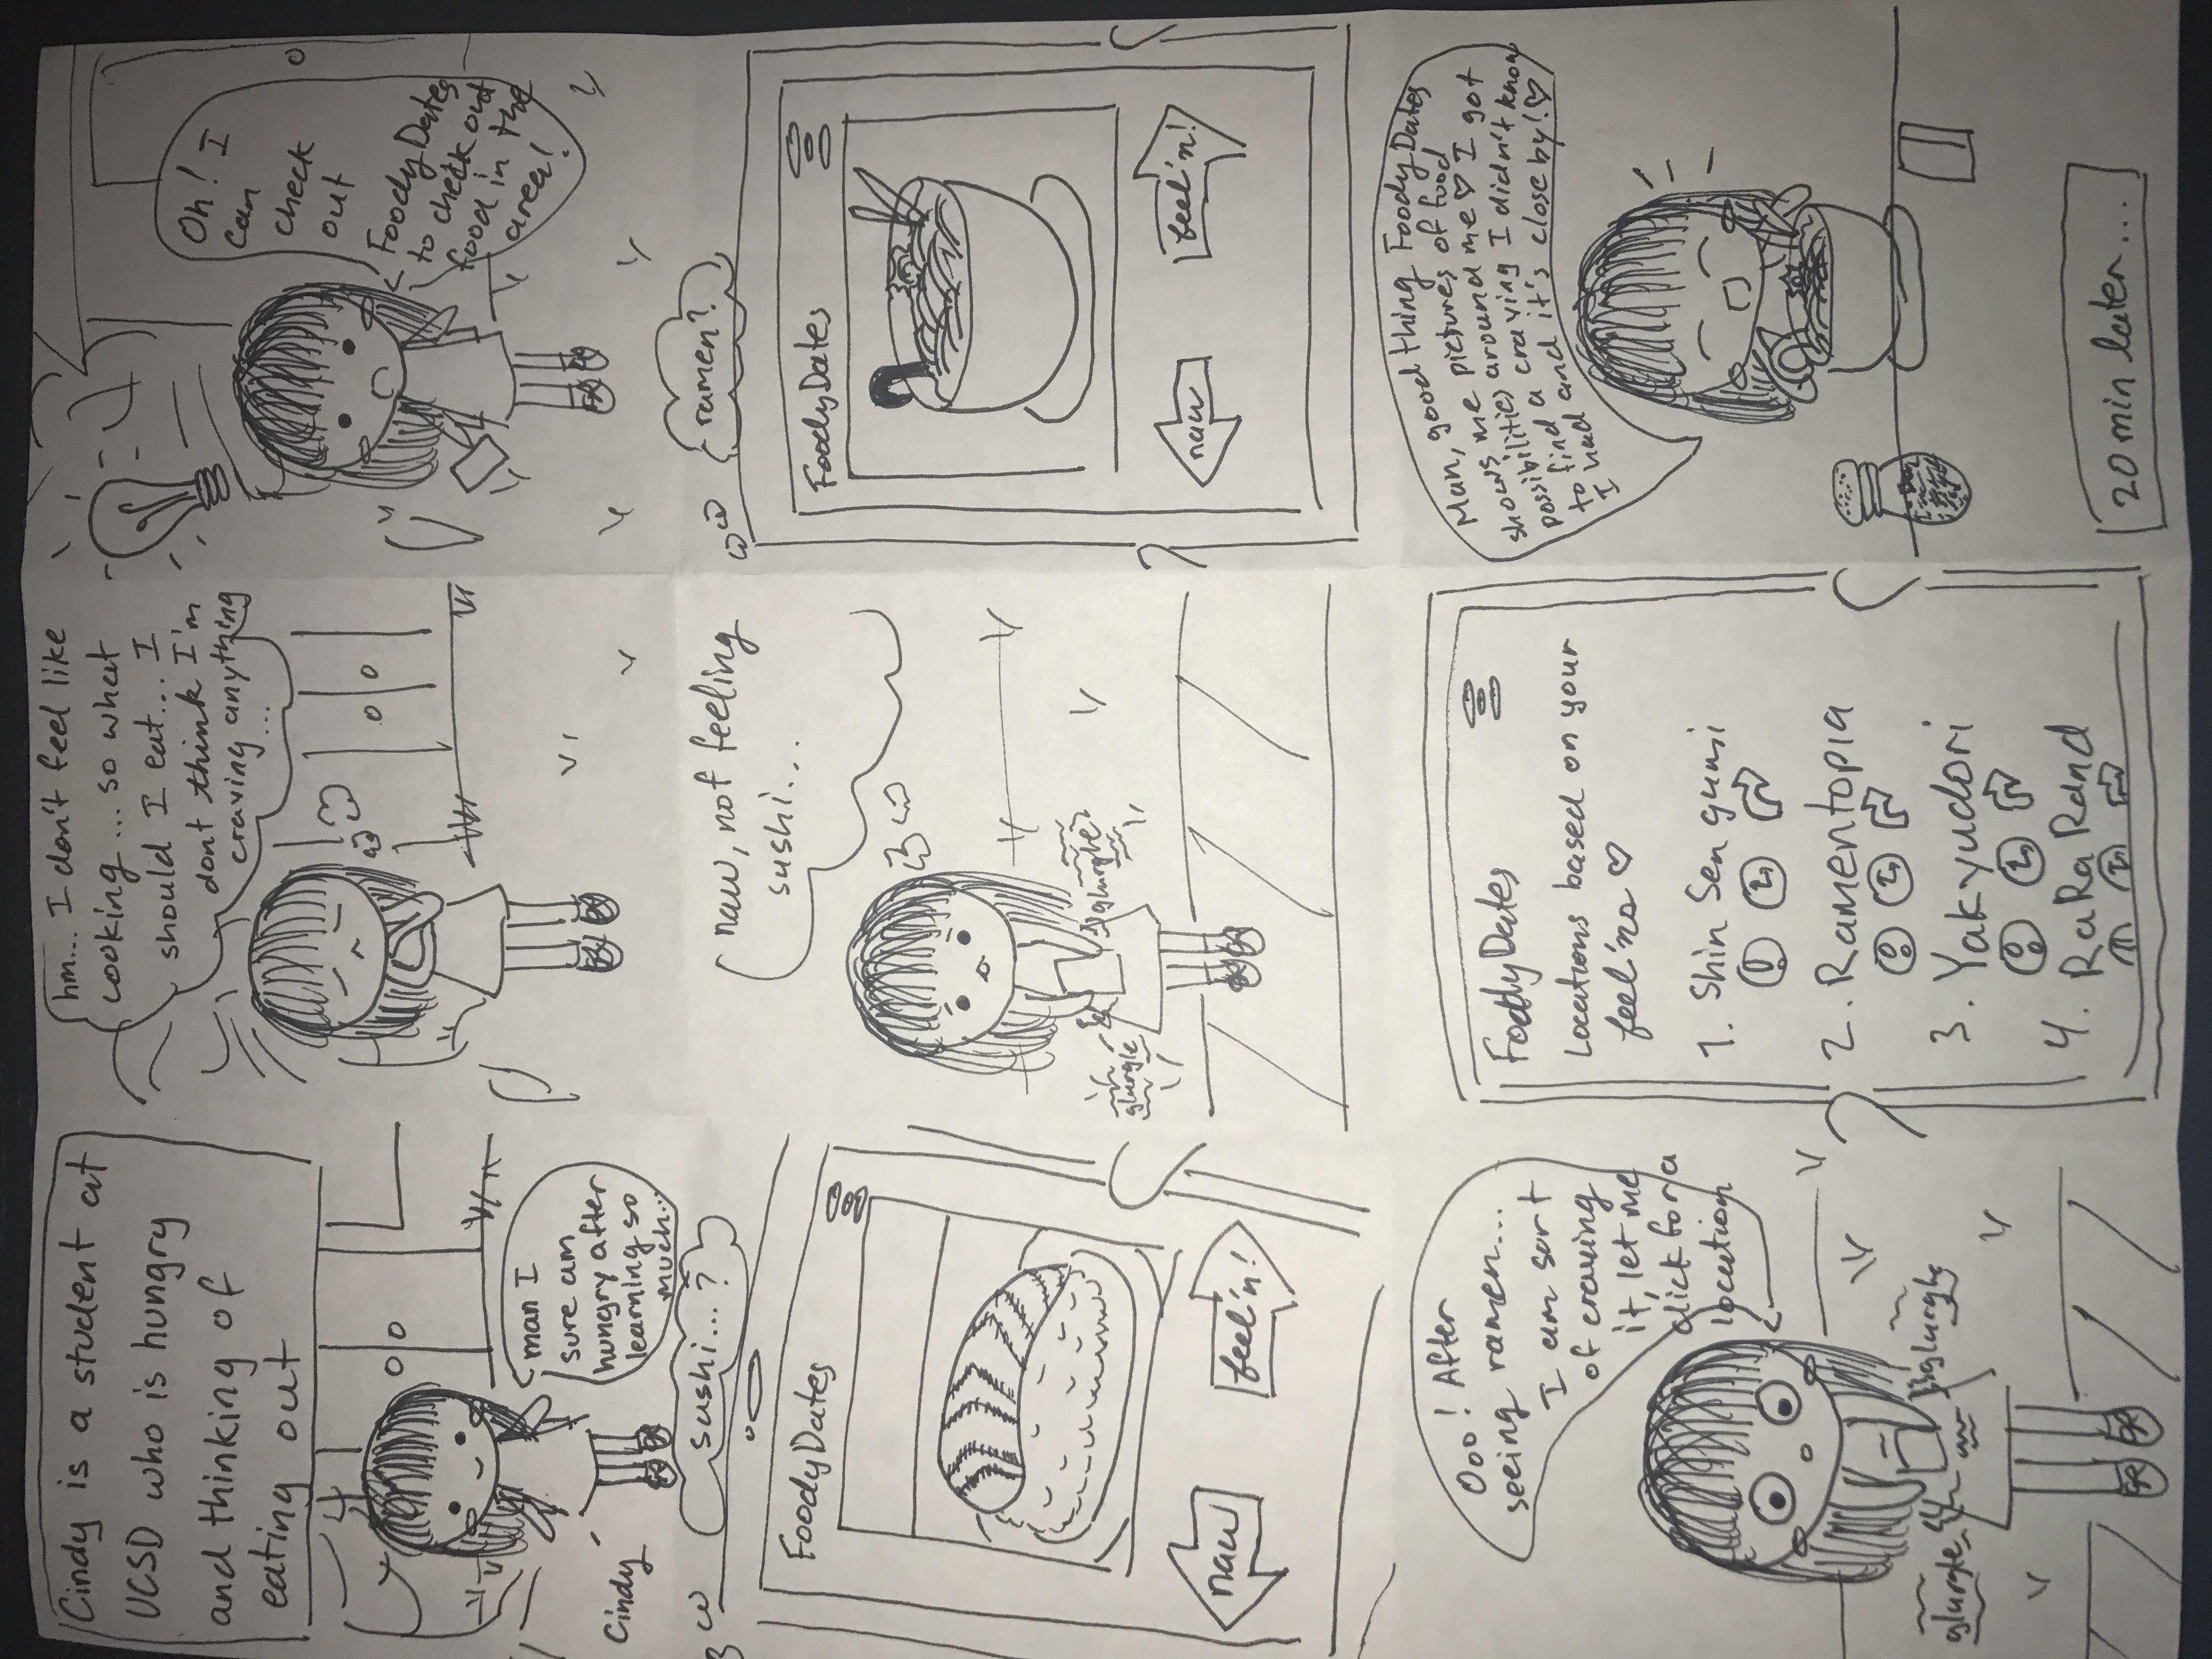 Cindy is a student at
UCSD who is hungry
and thinking of
eating out
man I
sure am
hungry after
learning so
much...
Cindy
hm... I don't feel like
cooking... so what
should I eat... I
dont think I'm
craving anything
...
Oh! I
can
check
out
FoodyDates
to check out
food in the
area!
sushi...?
FoodyDates
naw
feel'n!
naw, not feeling
sushi...
glurgle
glurgle
ramen?
FoodyDates
naw
feel'n!
Ooo! After
seeing ramen...
I am sort
of craving
it, let me
click for a
location
glurgle
glurgle
FoodyDates
Locations based on your
feel'ns ♡
1. Shin Sen gumi
2. Ramentopia
3. Yakyudori
4. RaRa Rand
Man, good thing FoodyDates
shows me pictures of food
possibilities around me ♡ I got
to find a craving I didn't know
I had and it's close by! ♡
20 min later...